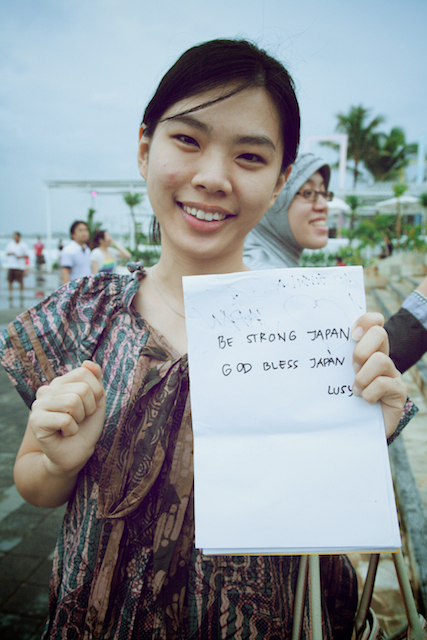 BE STRONG JAPAN
GOD BLESS JAPAN
LUSY